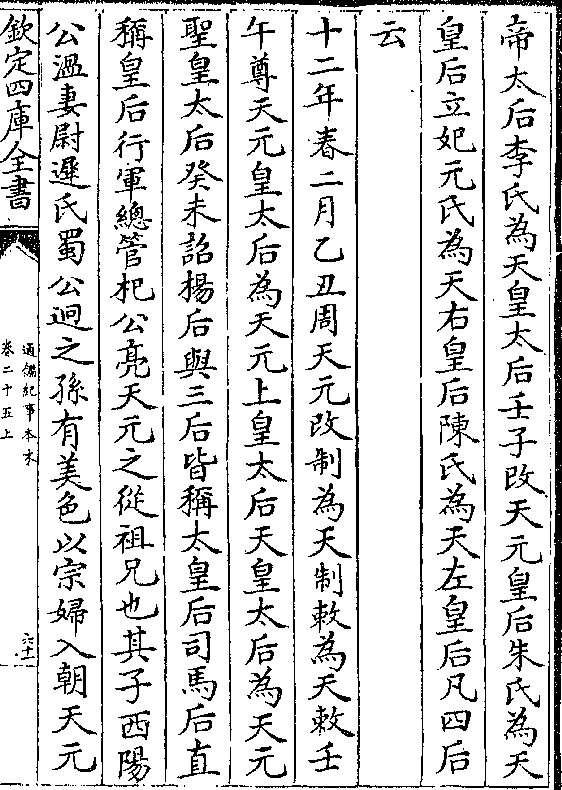 帝太后李氏為天皇太后壬子改天元皇后朱氏為天
皇后立妃元氏為天右皇后陳氏為天左皇后凡四后
云
十二年春二月乙丑周天元改制為天制敕為天敕壬
午尊天元皇太后為天元上皇太后天皇太后為天元
聖皇太后癸未詔楊后與三后皆稱太皇后司馬后直
稱皇后行軍總管杞公亮天元之從祖兄也其子西陽
公溫妻尉遲氏蜀公迥之孫有美色以宗婦入朝天元
欽定四庫全書
通鑑紀事本末
卷二十五上
六十一